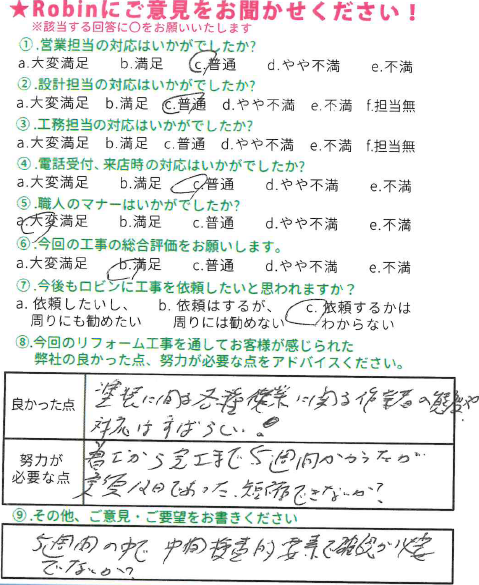 ★Robinにご意見をお聞かせください！
※該当する回答に〇をお願いいたします
①.営業担当の対応はいかがでしたか?
a.大変満足 b.満足 c.普通 d.やや不満 e.不満
②.設計担当の対応はいかがでしたか?
a.大変満足 b.満足 c.普通 d.やや不満 e.不満 f.担当無
③.工務担当の対応はいかがでしたか?
a.大変満足 b.満足 c.普通 d.やや不満 e.不満 f.担当無
④.電話受付、来店時の対応はいかがでしたか?
a.大変満足 b.満足 c.普通 d.やや不満 e.不満
⑤.職人のマナーはいかがでしたか?
a.大変満足 b.満足 c.普通 d.やや不満 e.不満
⑥.今回の工事の総合評価をお願いします。
a.大変満足 b.満足 c.普通 d.やや不満 e.不満
⑦.今後もロビンに工事を依頼したいと思われますか？
a. 依頼したいし、 b. 依頼はするが、 c. 依頼するかは
周りにも勧めたい 周りには勧めない わからない
⑧.今回のリフォーム工事を通してお客様が感じられた
弊社の良かった点、努力が必要な点をアドバイスください。
良かった点
塗装に関る各種作業に関る作業者の態度や
対応はすばらしい！
努力が
必要な点
着工から完工まで5週間かかったが
実質 日であった、短縮できないか?
⑨.その他、ご意見・ご要望をお書きください
5週間の中で 中間検査的要素で確認が必要
でないか?